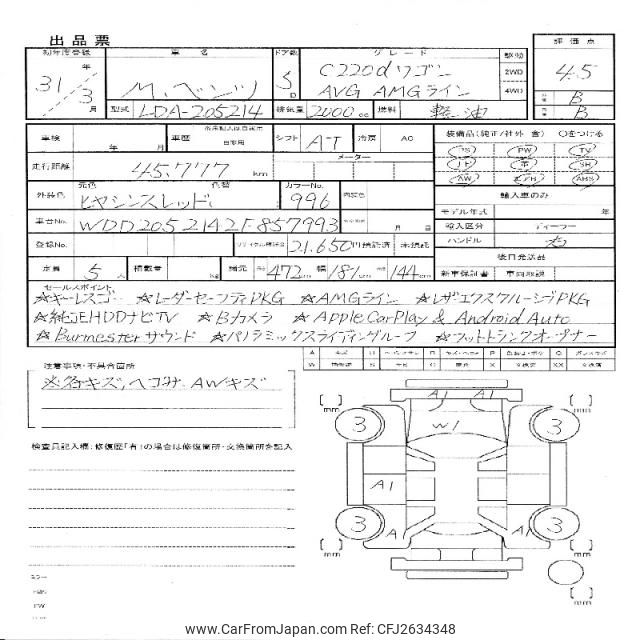 出品票
初年度登録 車名 ドア数 グレード 駆動 評価点
31年3月 M.ベンツ 5D C220dワゴン 2WD 4.5
AVG AMGライン 4WD
型式 LDA-205214 排気量 2000cc 燃料 軽油 B
B
車検 年 月 車歴 自家用 シフト AT 冷房 AC 装備品(純正/社外 含) ○をつける
走行距離 45,777km メーター PS PW TV
AW ABS
外装色 元色 色替 カラーNo. 輸入車のみ
ヒヤシンスレッド 996 モデル年式 年
車台No. WDD2052142F857993 月 日 輸入区分 ディーラー
登録No. リサイクル預託金 21,650円預託済 未預託 ハンドル 右
後日発送品
定員 5人 積載量 kg 諸元 長472cm 幅181cm 高144cm 新車保証書 車両取説
セールスポイント
☆キーレスゴー ☆レーダーセーフティPKG ☆AMGライン ☆レザーエクスクルーシブPKG
☆純正HDDナビTV ☆Bカメラ ☆Apple CarPlay & Android Auto
☆Burmesterサウンド ☆パノラミックスライディングルーフ ☆フットトランクオープナー
注意事項・不具合箇所
※各キズ、ヘコみ AWキズ
検査員記入欄:修復歴「有」の場合は修復箇所・交換箇所を記入
A1 A1
[ ]mm 3 W1 3 [ ]mm
A1
3 A1 A1 3
[ ]mm [ ]mm
[ ]mm
www.CarFromJapan.com Ref: CFJ2634348